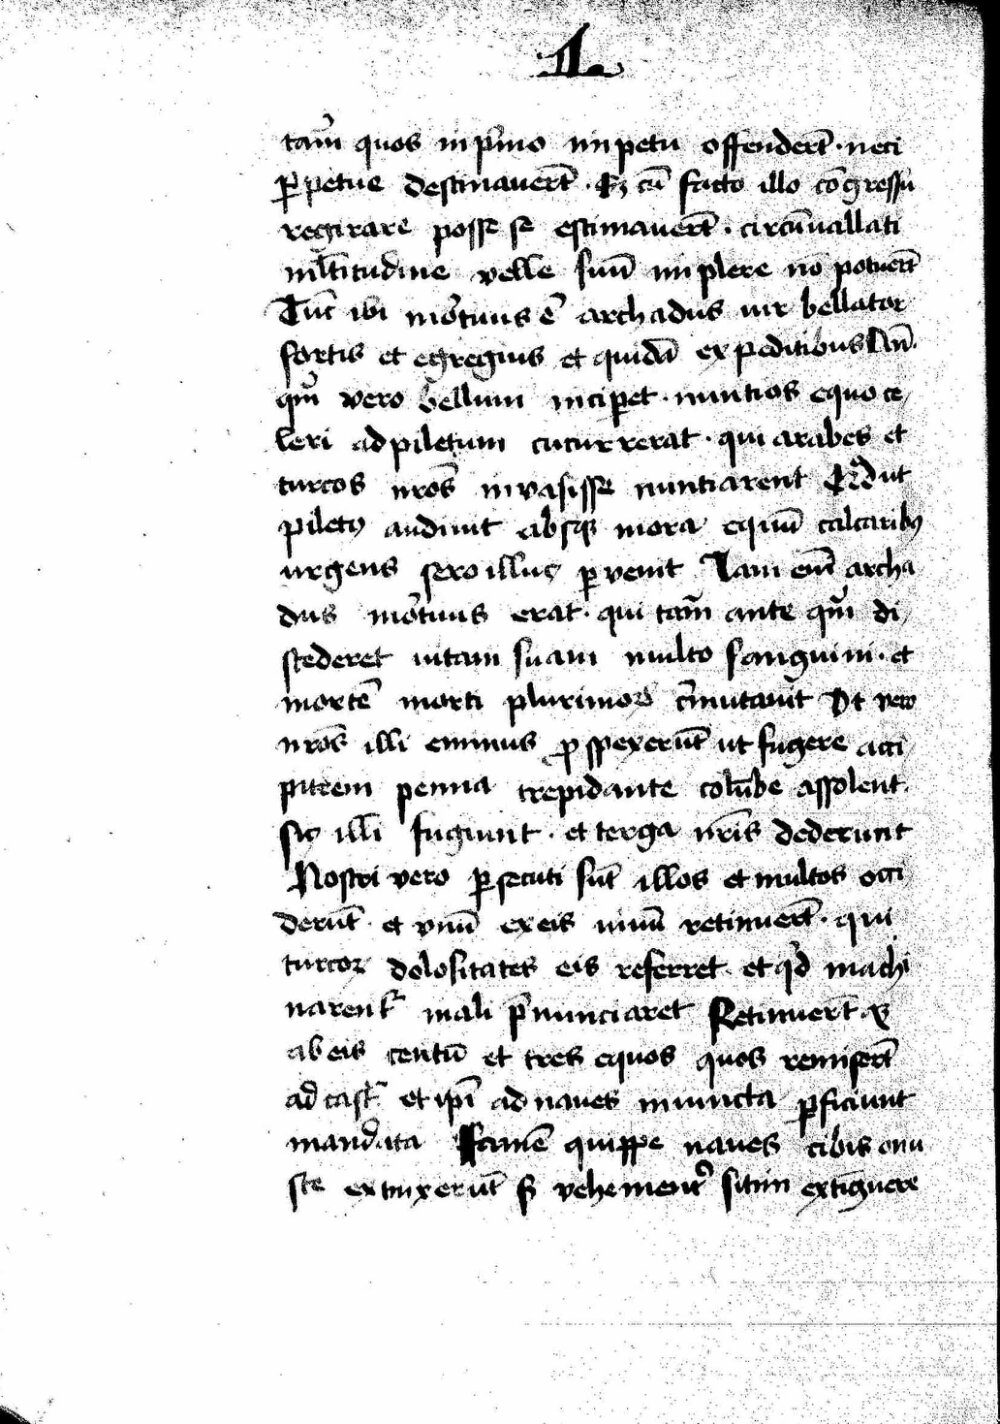 tam̄ quos in p̄mo impetu offender̄t · neci
ꝑpetue destinauer̄t · Sꝫ cū facto illo cōgressu
regirare posse se estimauer̄t · circūuallati
ml̄titudine velle suū implere nō potuer̄t
Tūc ibi mor̄tuus ē archadus uir bellator
fortis et egregius et quidā expeditibus An̄
qm̄ vero bellum incip̄et · nuntios equo ce
leri ad piletum cucurrerat · qui arabes et
turcos nr̄os inuasisse nuntiarent Qd̄ ut
piletꝰ audiuit absqꝫ mora equū calcaribꝰ
urgens sero illuc ꝑvenit Iam em̄ archa
dus mor̄tuus erat · qui tam̄ ante qm̄ di
scederet uitam suam multo sanguini · et
mortē morti plurimoꝝ cōmutauit Vt vero
nr̄os illi eminus ꝓspexerūt ut fugere acci
pitrem penna trepidante colūbe assolent ·
sic illi fugiunt · et terga nr̄is dederunt
Nostri vero ꝑsecuti sūt illos et multos occi
derūt · et vnū ex eis uiuū retinuer̄t · qui
turcoꝝ dolositates eis referret · et qd̄ machi
narent᷑ mali p̄nunciaret Retinuer̄t qꝫ
ab eis centū et tres equos quos remiser̄t
ad cast᷑ et ip̄i ad naues iniuncta ꝑficiunt
mandata Famē quippe naues cibis onu
ste extinxerūt sꝫ vehement᷑ sitim extīguere